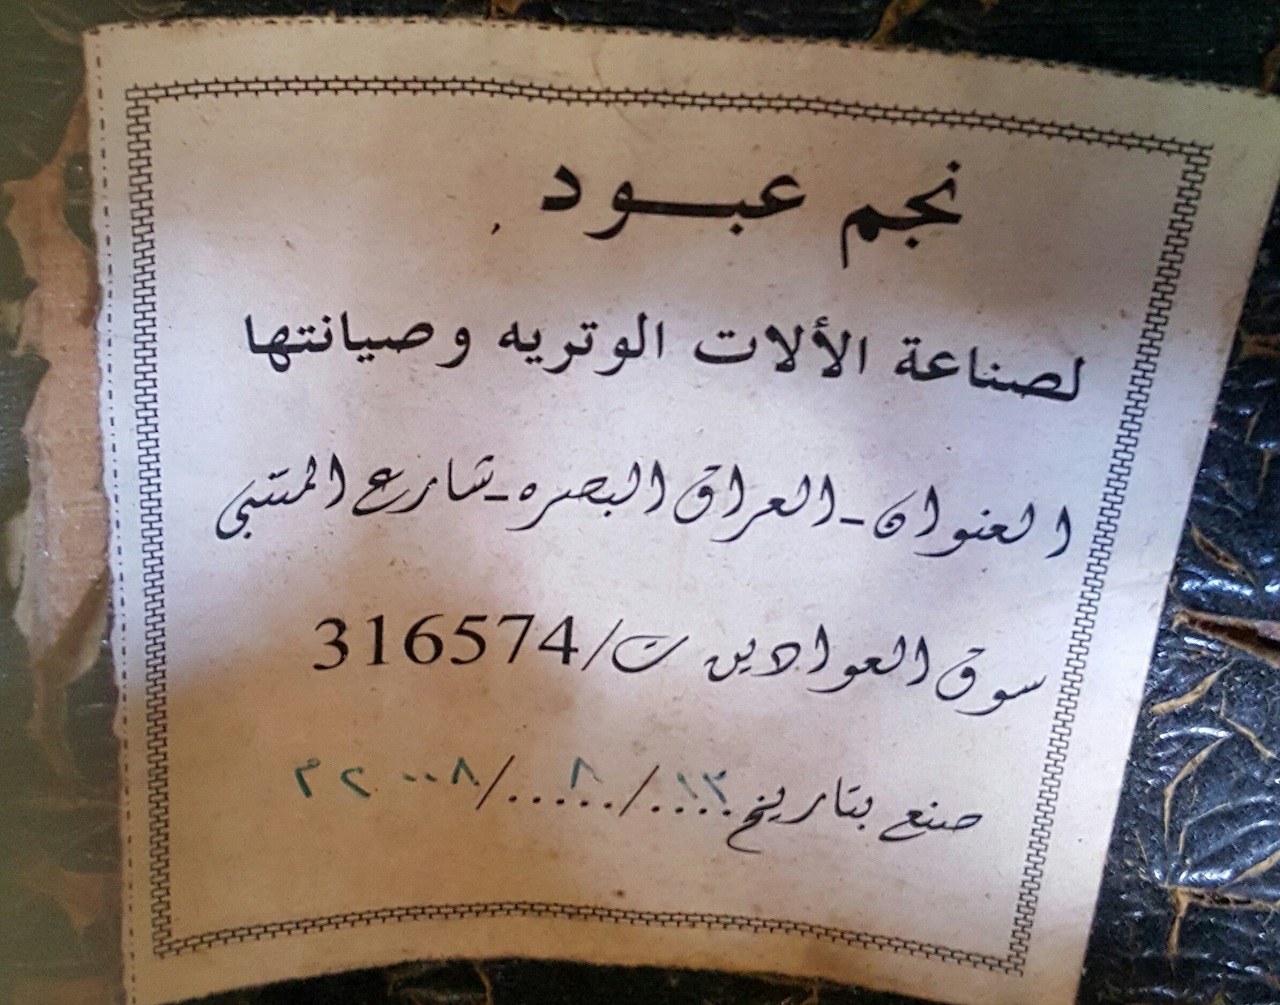 نجم عبود
لصناعة الألات الوتريه وصيانتها
العنوان - العراق البصره - شارع المتنبي
سوق العوادين ت/316574
صنع بتاريخ ١٣/٨/٢٠٠٨م